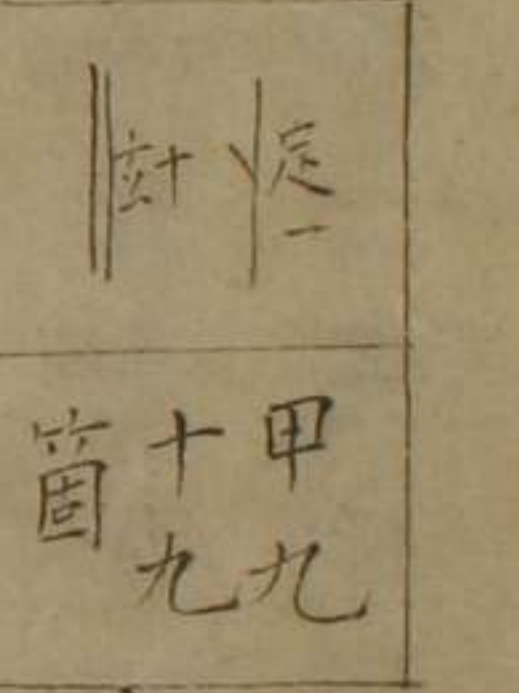 定一
甲九
十九
箇